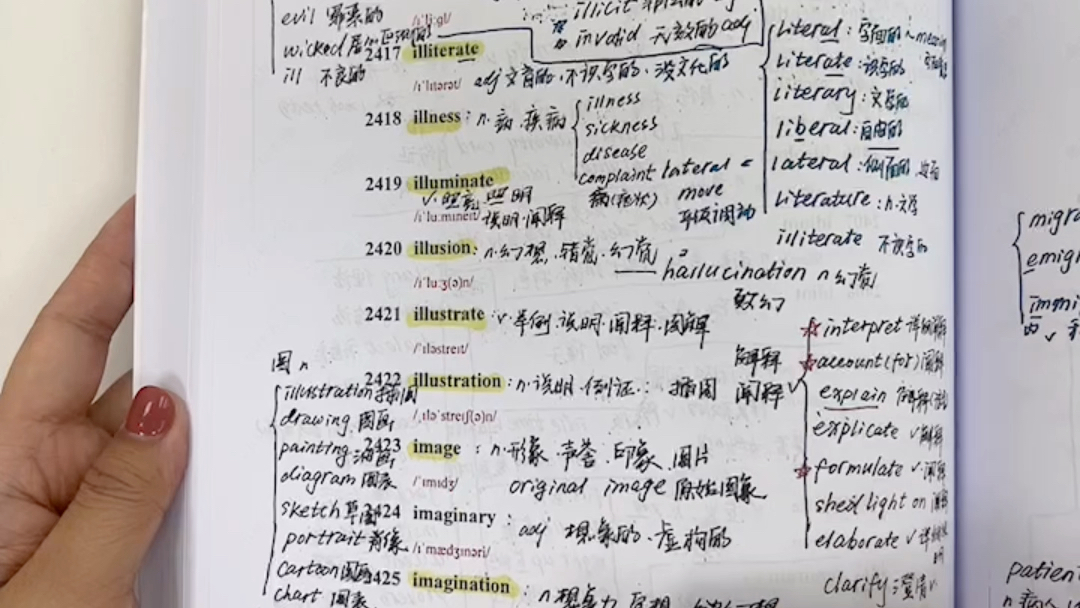 evil 邪恶的
wicked
ill 不良的
/ɪˈliːgl/
illicit
invalid 无效的 adj
2417 illiterate
/ɪˈlɪtərət/ adj 文盲的、不识字的、没文化的
2418 illness : n. 病、疾病
illness
sickness
disease
complaint
病(症状)
lateral =
move
平级调动
2419 illuminate
v. 照亮、照明
/ɪˈluːmɪneɪt/ 说明、阐释
2420 illusion : n. 幻想、错觉、幻觉
/ɪˈluːʒ(ə)n/
hallucination n 幻觉
致幻
2421 illustrate : v. 举例、说明、阐释、图解
/ˈɪləstreɪt/
2422 illustration : n. 说明、例证 : 插图
/ˌɪləˈstreɪʃ(ə)n/
2423 image : n. 形象、声誉、印象、图片
/ˈɪmɪdʒ/ original image 原始图象
2424 imaginary : adj 想象的、虚构的
/ɪˈmædʒɪnəri/
2425 imagination : n 想象力
literal : 字面的
literate : 识字的
literary : 文学的
liberal : 自由的
lateral : 侧面的
literature : n. 文学
illiterate 不识字的
解释
阐释
interpret
account (for) 阐释
explain 解释
explicate v 解释
formulate v. 阐释
shed light on 阐释
elaborate v
clarify : 澄清 v
图 n
illustration 插图
drawing 图画
painting 油画
diagram 图表
sketch 草图
portrait 肖像
cartoon
chart 图表
migra
emigr
immi
patien
n 病人